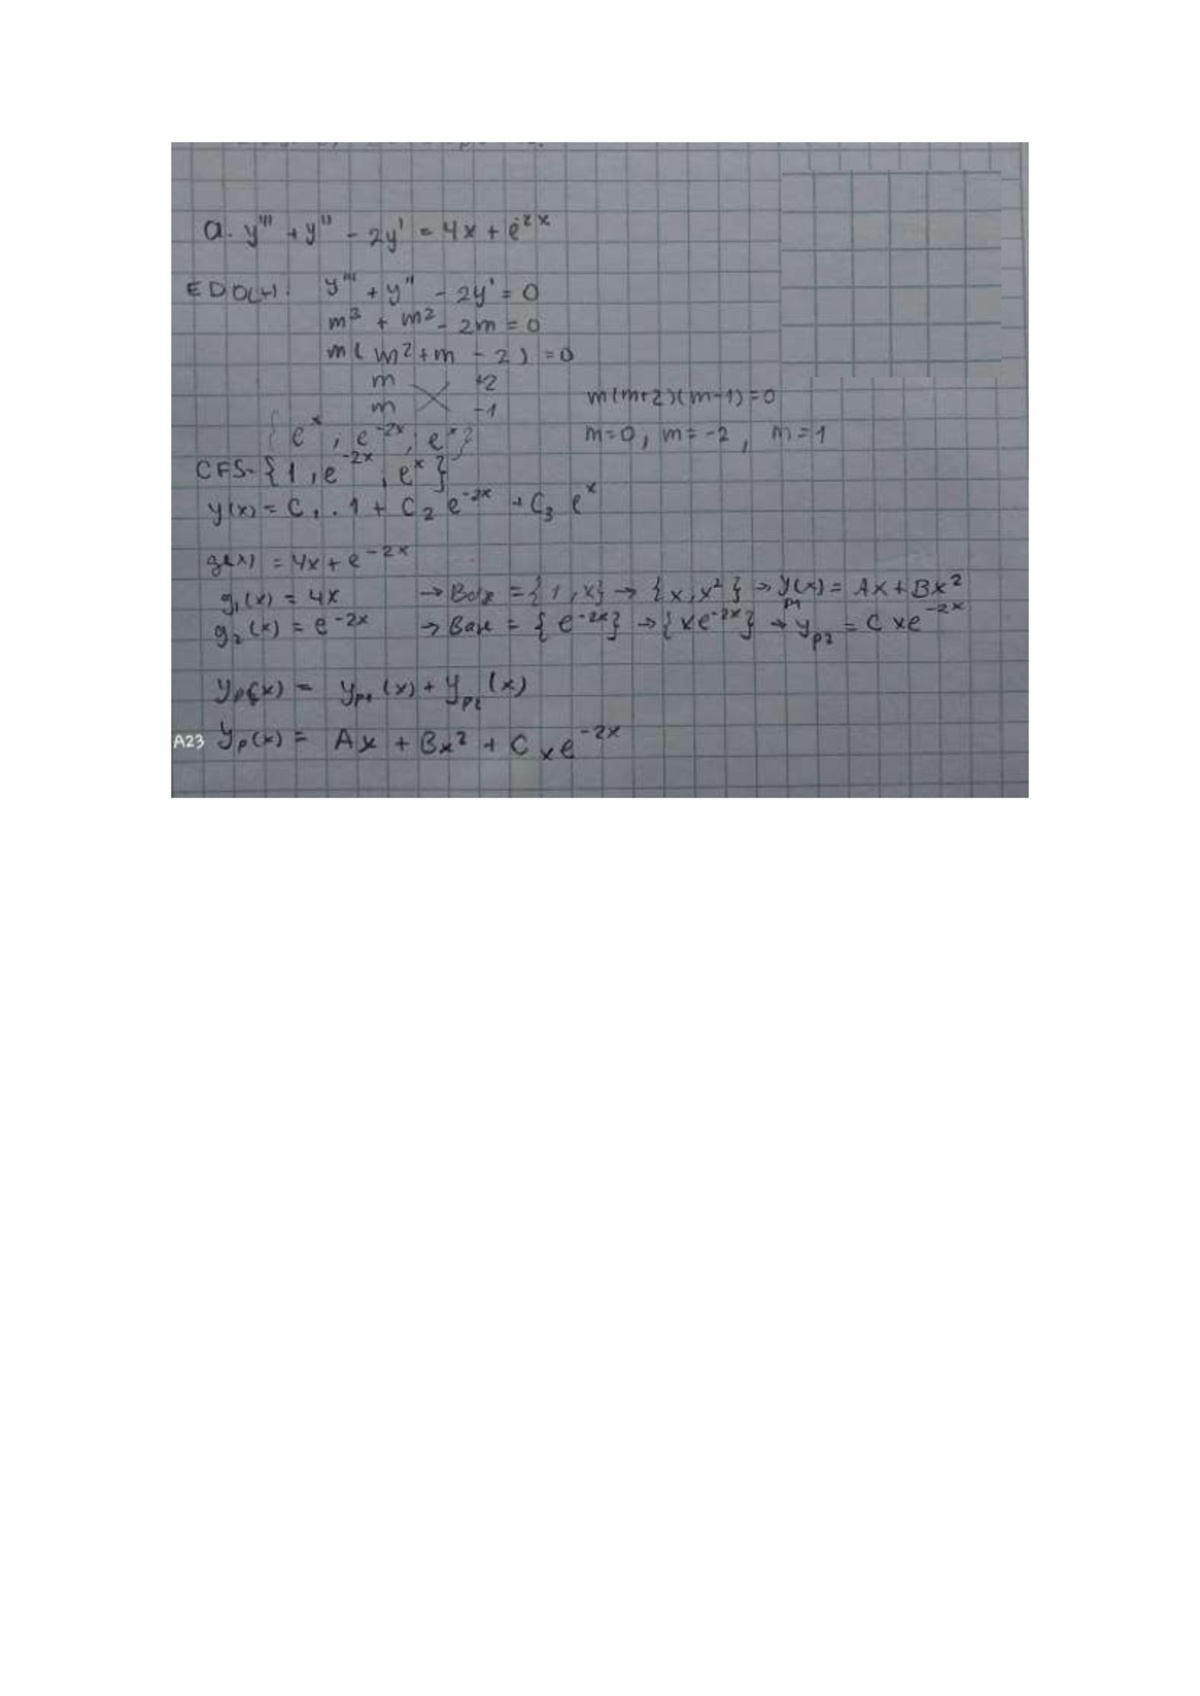 a. y''' + y'' - 2y' = 4x + e^-2x
EDOLH: y''' + y'' - 2y' = 0
m³ + m² - 2m = 0
m(m² + m - 2) = 0
m +2
m -1
m(m+2)(m-1)=0
{e^x; e^-2x; e^x}
m=0, m=-2, m=1
CFS={1, e^-2x, e^x}
y(x) = C₁ . 1 + C₂ e^-2x + C₃ e^x
g(x) = 4x + e^-2x
g₁(x) = 4x → Base = {1, x} → {x, x²} → y_p1(x) = Ax + Bx²
g₂(x) = e^-2x → Base = {e^-2x} → {xe^-2x} → y_p2 = C xe^-2x
y_p(x) = y_p1(x) + y_p2(x)
A23 y_p(x) = Ax + Bx² + C xe^-2x